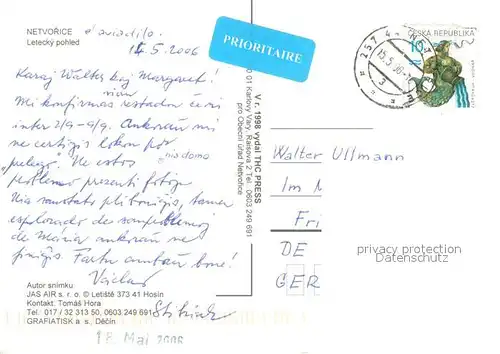 NETVOŘICE
Letecký pohled
14.5.2006
Karaj Walter kaj Margaret!
nian
Mi konfirmas restadon ĉe ni
inter 2/9 - 9/9. Ankoraŭ mi
ne certigis lokon por
"nia domo
Ne estos
problemo prezenti fotojn
Nia sanstato pliboniĝis, tamen
esplorado de sanproblemoj
de Mária ankoraŭ ne
finiĝis. Fartu ambaŭ bone!
Václav
Autor snímku
JAS AIR s. r. o. © Letiště 373 41 Hosín
Kontakt: Tomáš Hora
Tel.: 017 / 32 313 50, 0603 249 691
GRAFIATISK a. s., Děčín
18. Mai 2006
PRIORITAIRE
V r. 1998 vydal THC PRESS
01 Karlovy Vary, Raisova 2 Tel. 0603 249 691
pro Obecní úřad Netvořice
ČESKÁ REPUBLIKA
10
257 4
15.5.06
3
Walter Ullmann
Im M
Fri
DE
GER
privacy protection
Datenschutz